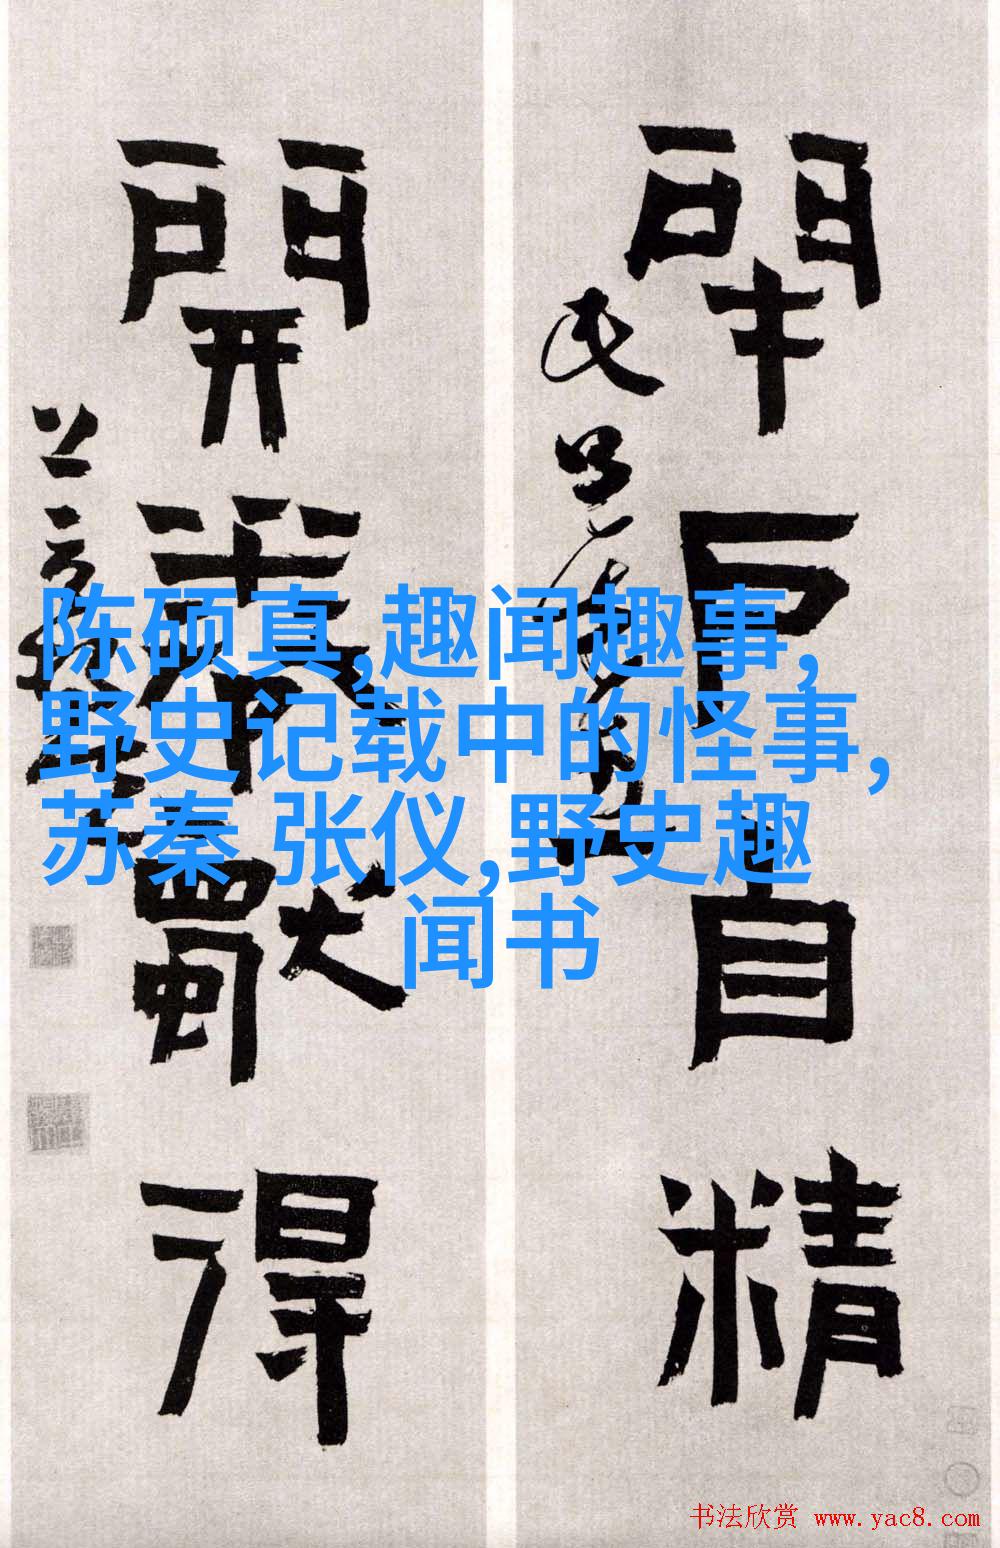 閉戶自精
開卷獨得
陈硕真,趣闻趣事,
野史记载中的怪事,
苏秦 张仪,野史趣
闻书
书法欣赏 www.yac8.com